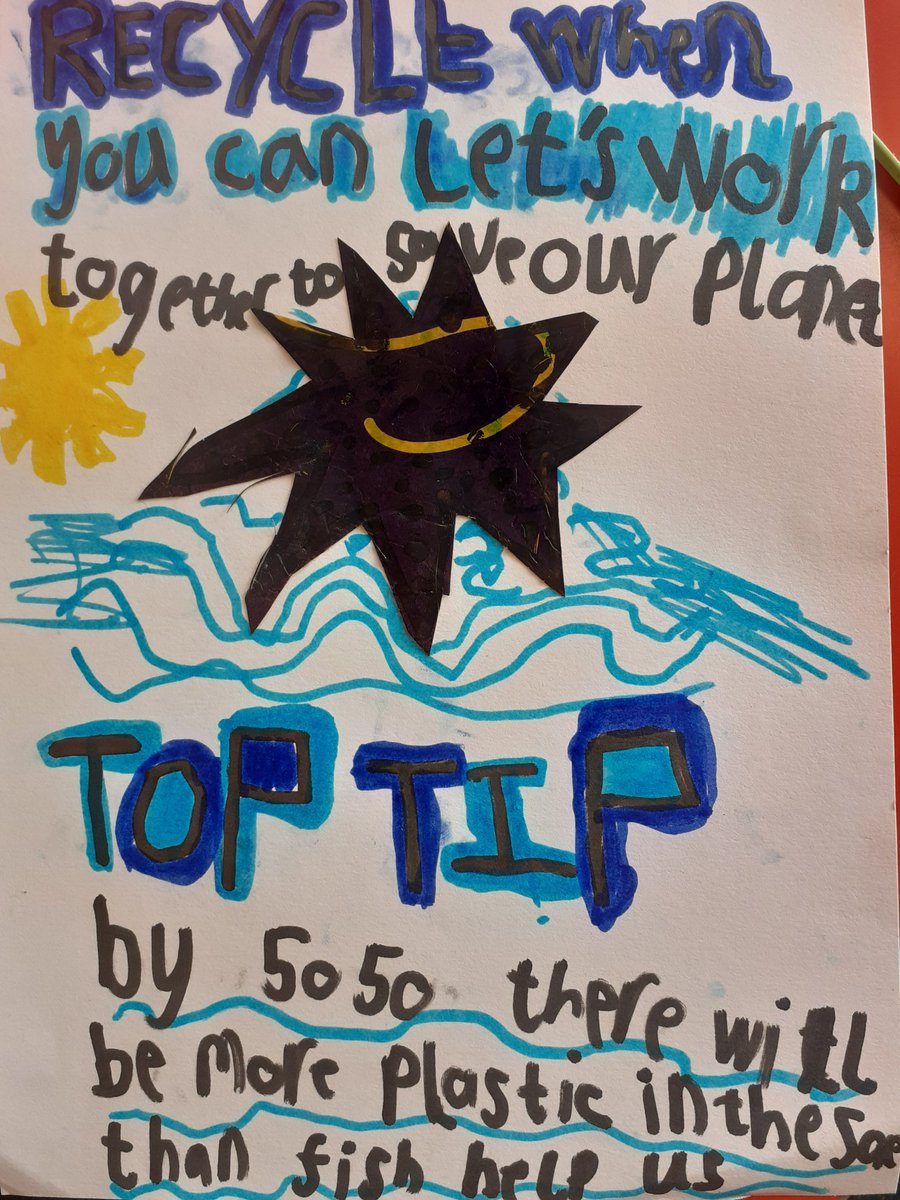 RECYCLE when
you can Let's Work
together to save our planet
TOP TIP
by 5050 there will
be more plastic in the sae
than fish help us